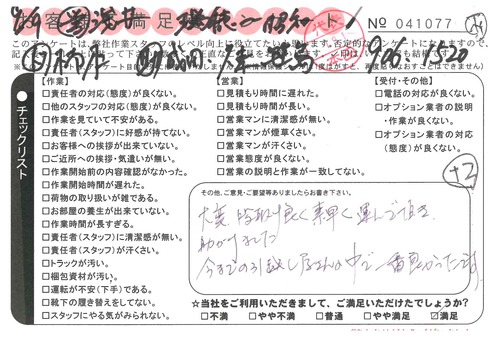 お客さま満足アンケート
No 041077
このアンケートは、弊社作業スタッフのレベル向上に役立てたい
【作業】
□責任者の対応(態度)が良くない。
□他のスタッフの対応(態度)が良くない。
□作業を見ていて不安がある。
□責任者(スタッフ)に好感が持てない。
□お客様への挨拶が出来ていない。
□ご近所への挨拶・気遣いが無い。
□作業開始前の内容確認がなかった。
□作業開始時間が遅れた。
□荷物の取り扱いが雑である。
□お部屋の養生が出来ていない。
□作業時間が長すぎる。
□責任者(スタッフ)に清潔感が無い。
□責任者(スタッフ)が汗くさい。
□トラックが汚い。
□梱包資材が汚い。
□運転が不安(下手)である。
□靴下の履き替えをしてない。
□スタッフにやる気がみられない。
【営業】
□見積もり時間に遅れた。
□見積もり時間が長い。
□営業マンに清潔感が無い。
□営業マンが煙草くさい。
□営業マンが汗くさい。
□営業態度が良くない。
□営業の説明と作業が一致してない。
【受付・その他】
□電話の対応が良くない。
□オプション業者の説明
・作業が良くない。
□オプション業者の対応
(態度)が良くない。
チェックリスト
+2
その他、ご意見・ご要望等ありましたらお書き下さい。
大変、段取り良く素早く運んで頂き
助かりました
今までの引越し屋さんの中で一番良かったです。
☆当社をご利用いただきまして、ご満足いただけたでしょうか?
□不満 □やや不満 □普通 □やや満足 ☑満足